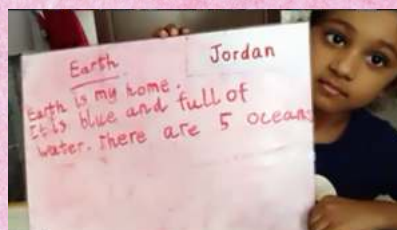 Earth
Jordan
Earth is my home.
It is blue and full of
water. There are 5 oceans